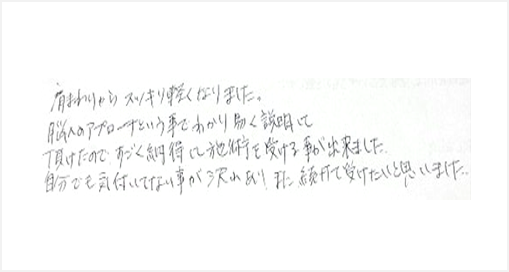 肩まわりからスッキリ軽くなりました。
脳へのアプローチという事でわかり易く説明して
頂けたのですごく納得して施術を受ける事が出来ました。
自分でも気付いてない事が沢山あり、また続けて受けたいと思いました。